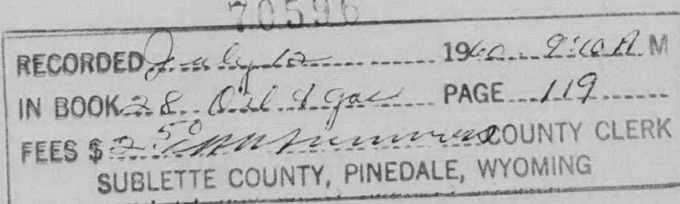 70596
RECORDED July 12 1960 9:10 A M
IN BOOK 28 Oil & gas PAGE 119
FEES $ 2.50 COUNTY CLERK
SUBLETTE COUNTY, PINEDALE, WYOMING